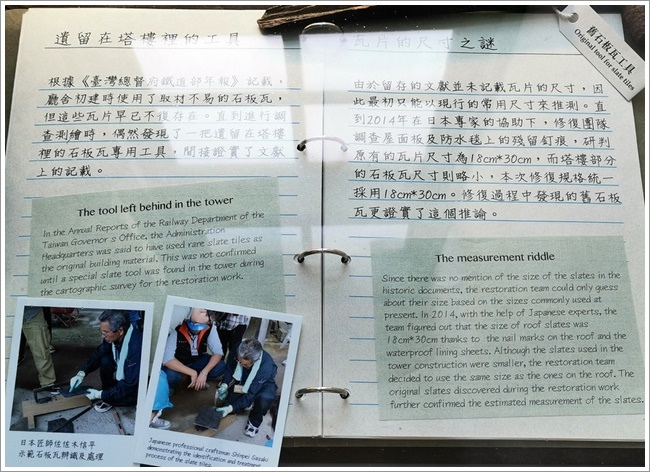 遺留在塔樓裡的工具
根據《臺灣總督府鐵道部年報》記載，
廳舍初建時使用了取材不易的石板瓦，
但這些瓦片早已不復存在。直到進行調
查測繪時，偶然發現了一把遺留在塔樓
裡的石板瓦專用工具，間接證實了文獻
上的記載。
The tool left behind in the tower
In the Annual Reports of the Railway Department of the
Taiwan Governor's Office, the Administration
Headquarters was said to have used rare slate tiles as
the original building material. This was not confirmed
until a special slate tool was found in the tower during
the cartographic survey for the restoration work.
日本匠師佐佐木信平
示範石板瓦辨識及處理
Japanese professional craftsman Shinpei Sasaki
demonstrating the identification and treatment
process of the slate tiles.
瓦片的尺寸之謎
由於留存的文獻並未記載瓦片的尺寸，因
此最初只能以現行的常用尺寸來推測。直
到2014年在日本專家的協助下，修復團隊
調查屋面板及防水毯上的殘留釘痕，研判
原有的瓦片尺寸為18cm*30cm，而塔樓部分
的石板瓦尺寸則略小，本次修復規格統一
採用18cm*30cm。修復過程中發現的舊石板
瓦更證實了這個推論。
The measurement riddle
Since there was no mention of the size of the slates in the
historic documents, the restoration team could only guess
about their size based on the sizes commonly used at
present. In 2014, with the help of Japanese experts, the
team figured out that the size of roof slates was
18cm*30cm thanks to the nail marks on the roof and the
waterproof lining sheets. Although the slates used in the
tower construction were smaller, the restoration team
decided to use the same size as the ones on the roof. The
original slates discovered during the restoration work
further confirmed the estimated measurement of the slates.
舊石板瓦工具
Original tool for slate tiles